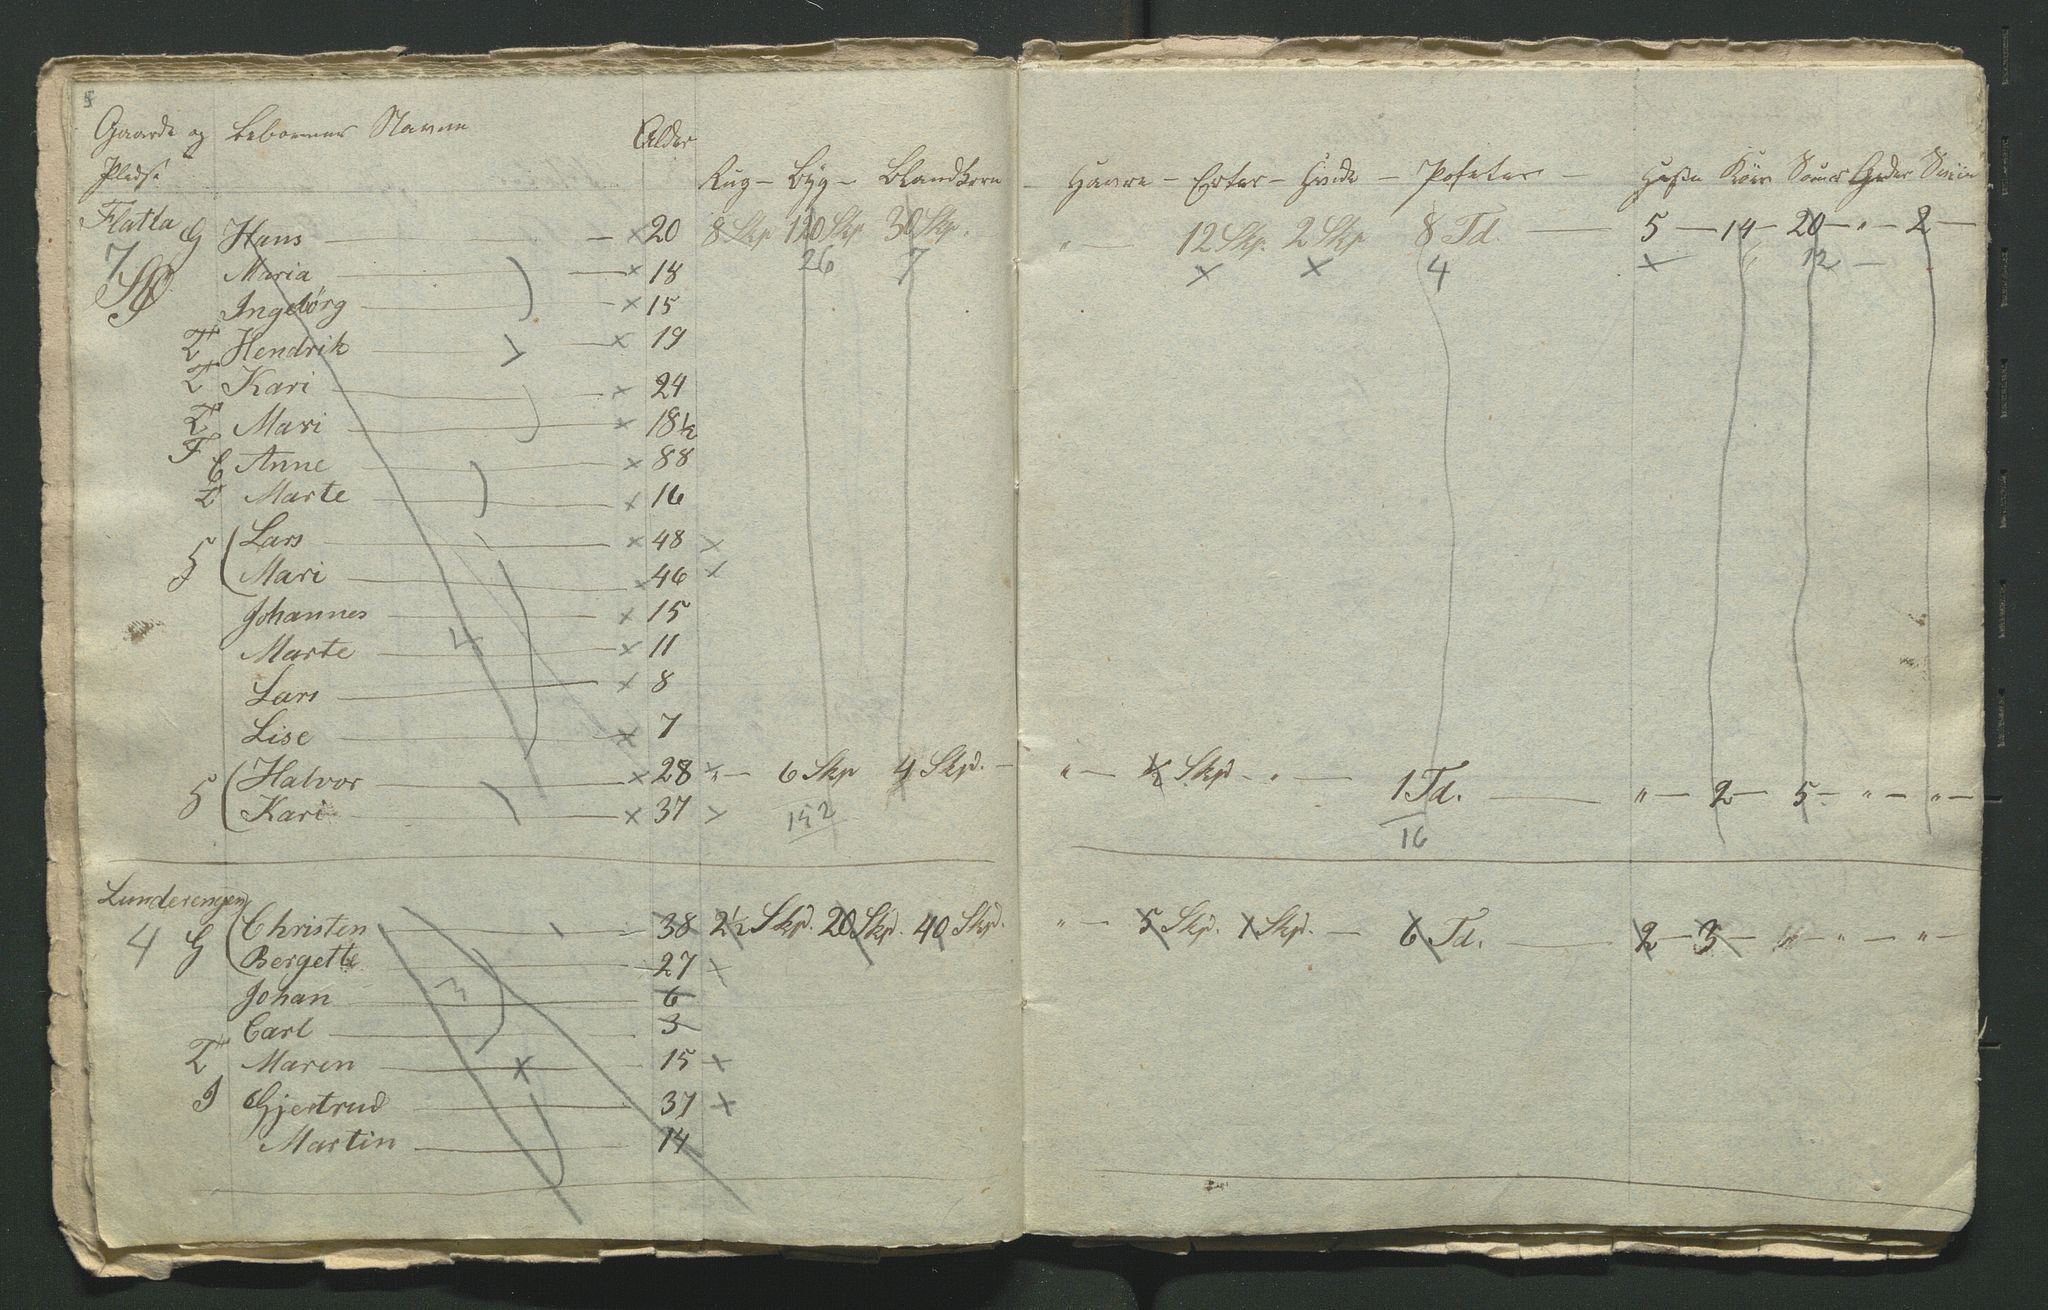 Gaarde og Beboernes Navne Alder
Pladse Rug - Byg - Blandkorn - Havre - Erter - Hvede - Poteter - Heste Kiør Souer Geder Sviin
Flatla G Hans 20 8 Skp 120 Skp 30 Skp. " 12 Skp. 2 Skp 8 Td. 5 - 14 - 20 - " - 2 -
7 Maria 18 26 7 x x 4 x 12 -
Ingebörg 15
T Hendrik 19
T Kari 24
T Mari 18½
F E Anne 88
T Marte 16
H Lars 48
Mari 46
Johannes 15
Marte 11
Lars 8
Lise 7
H Halvor 28 " - 6 Skp 4 Skp. - " - ½ Skp - " - 1 Td. " - 2 - 5 - " - " -
Kari 37 152 16
Lunderengen
4 G Christen 38 2½ Skp. 20 Skp. 40 Skp. " - 5 Skp. 1 Skp. - 6 Td. 2 - 3 - " - " - " -
Bergette 27
Johan 6
Carl 3
T Maren 15
I Gjertrud 37
Martin 14